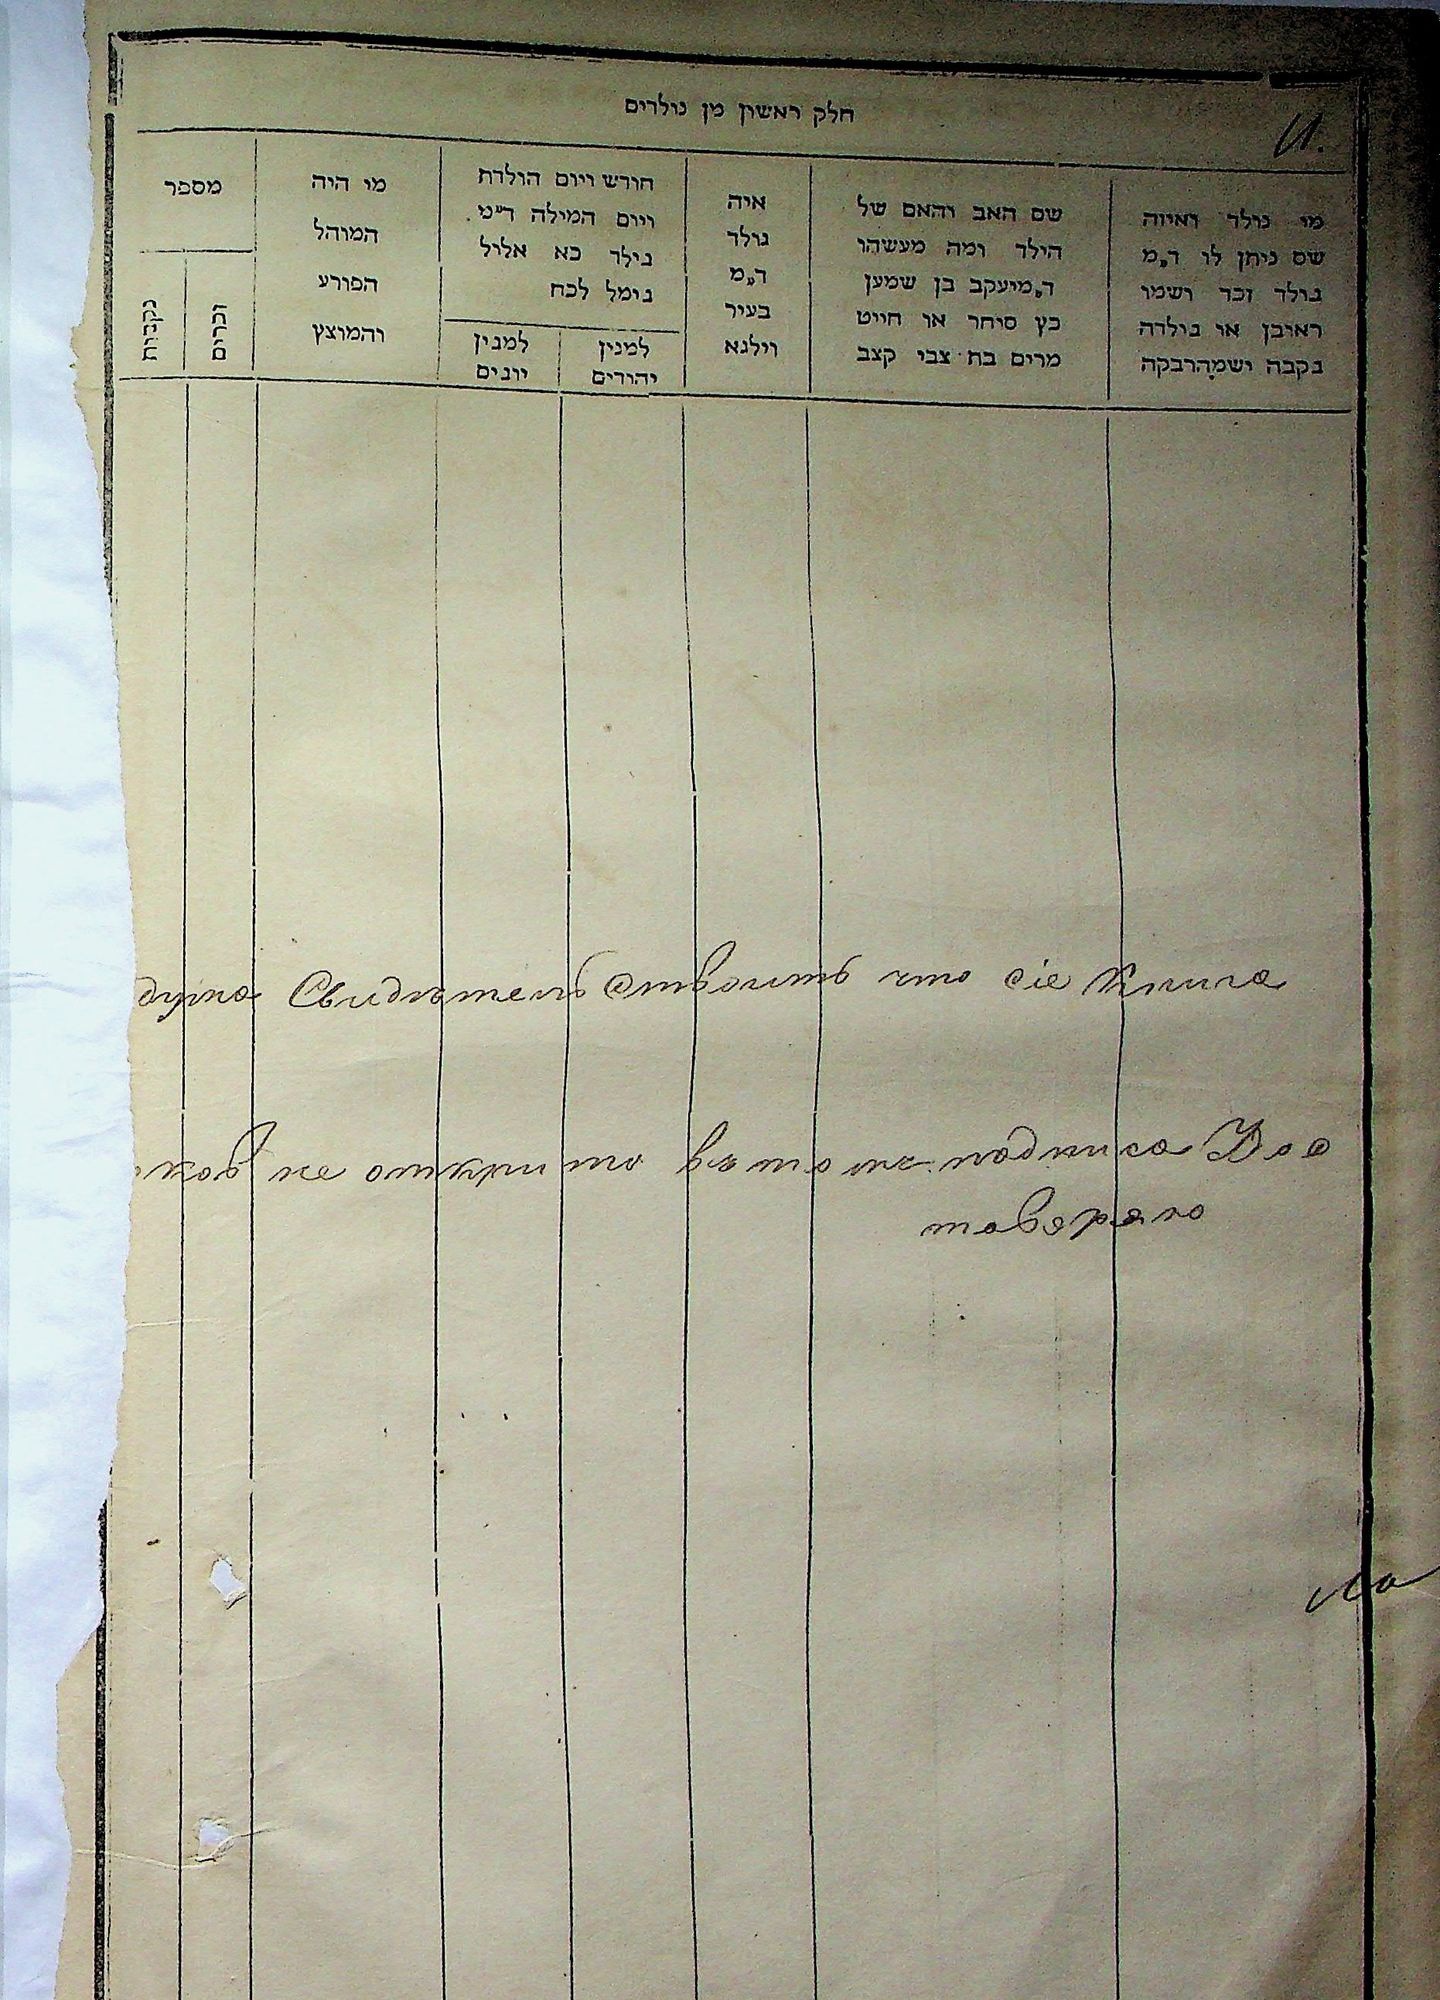 חלק ראשון מן נולדים
И.
מי נולד ואיזה
שם ניתן לו ד״מ
נולד זכר ושמו
ראובן או נולדה
נקבה ושמה רבקה
שם האב והאם של
הילד ומה מעשהו
ד״מ יעקב בן שמען
כץ סוחר או חייט
מרים בת צבי קצב
איה
נולד
ד״מ
בעיר
וילנא
חורש ויום הולדת
ויום המילה ד״מ
נילד כא אלול
נימל לכח
למנין
יהודים
למנין
יונים
מי היה
המוהל
הפורע
והמוצץ
מספר
זכרים
נקבות
дума Свидѣтельствоитъ что сіе Книга
ков не открито вътоже подписа Дос
товерено